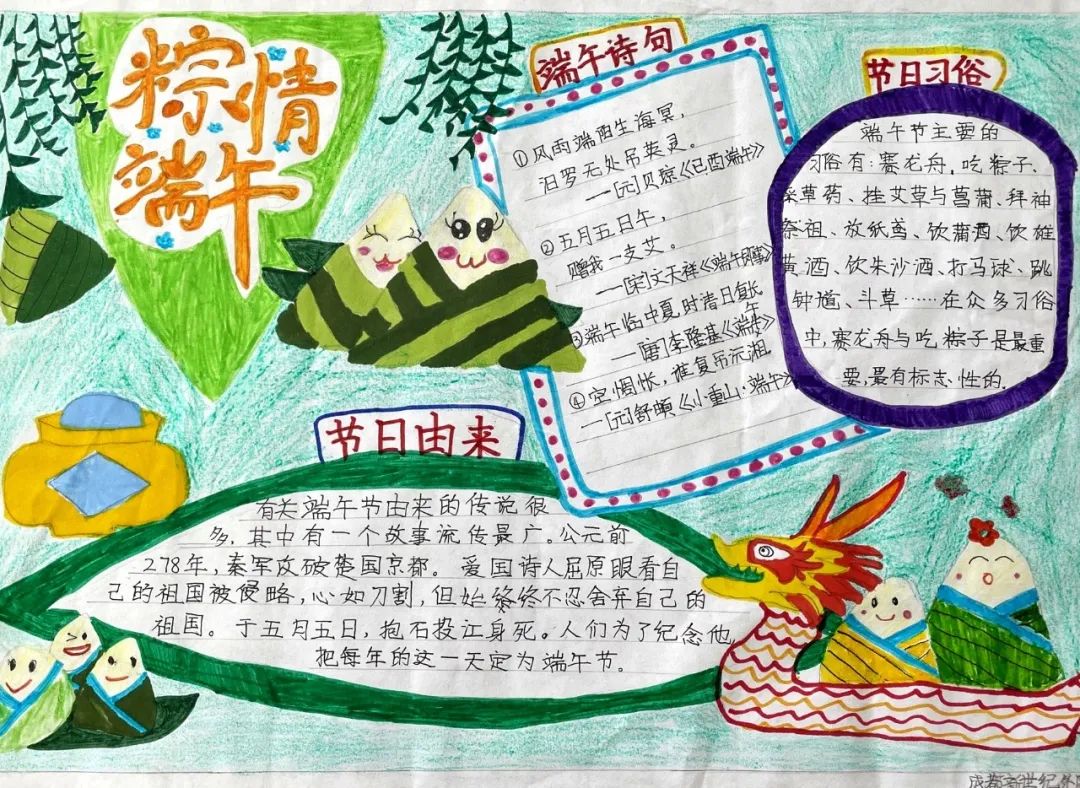 粽情
端午
端午诗句
①风雨端酉生海冥,
汨罗无处吊英灵。
—[元]贝琼《已酉端午》
②五月五日午,
赠我一支艾。
—[宋]文天祥《端午即事》
③端午临中夏,时清日复长
—[唐]李隆基《端午》
④空惆怅,谁复吊沅湘
—[元]舒頔《小重山·端午》
节日习俗
端午节主要的
习俗有:赛龙舟,吃粽子、
采草药、挂艾草与菖蒲、拜神
祭祖、放纸鸢、饮蒲酒、饮雄
黄酒、饮朱沙酒、打马球、跳
钟馗、斗草……在众多习俗
中,赛龙舟与吃粽子是最重
要,最有标志性的.
节日由来
有关端午节由来的传说很
多,其中有一个故事流传最广。公元前
278年,秦军攻破楚国京都。爱国诗人屈原眼看自
己的祖国被侵略,心如刀割,但始终不忍舍弃自己的
祖国。于五月五日,抱石投江身死。人们为了纪念他,
把每年的这一天定为端午节。
成都新世纪外